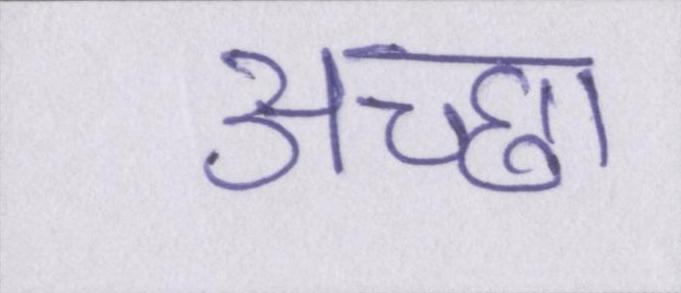 अच्छा